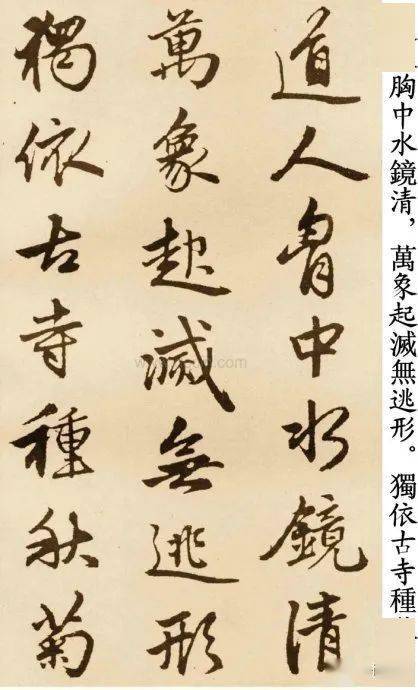 道人胷中水鏡清
萬象起滅無逃形
獨依古寺種秋菊
胸中水鏡清，萬象起滅無逃形。獨依古寺種